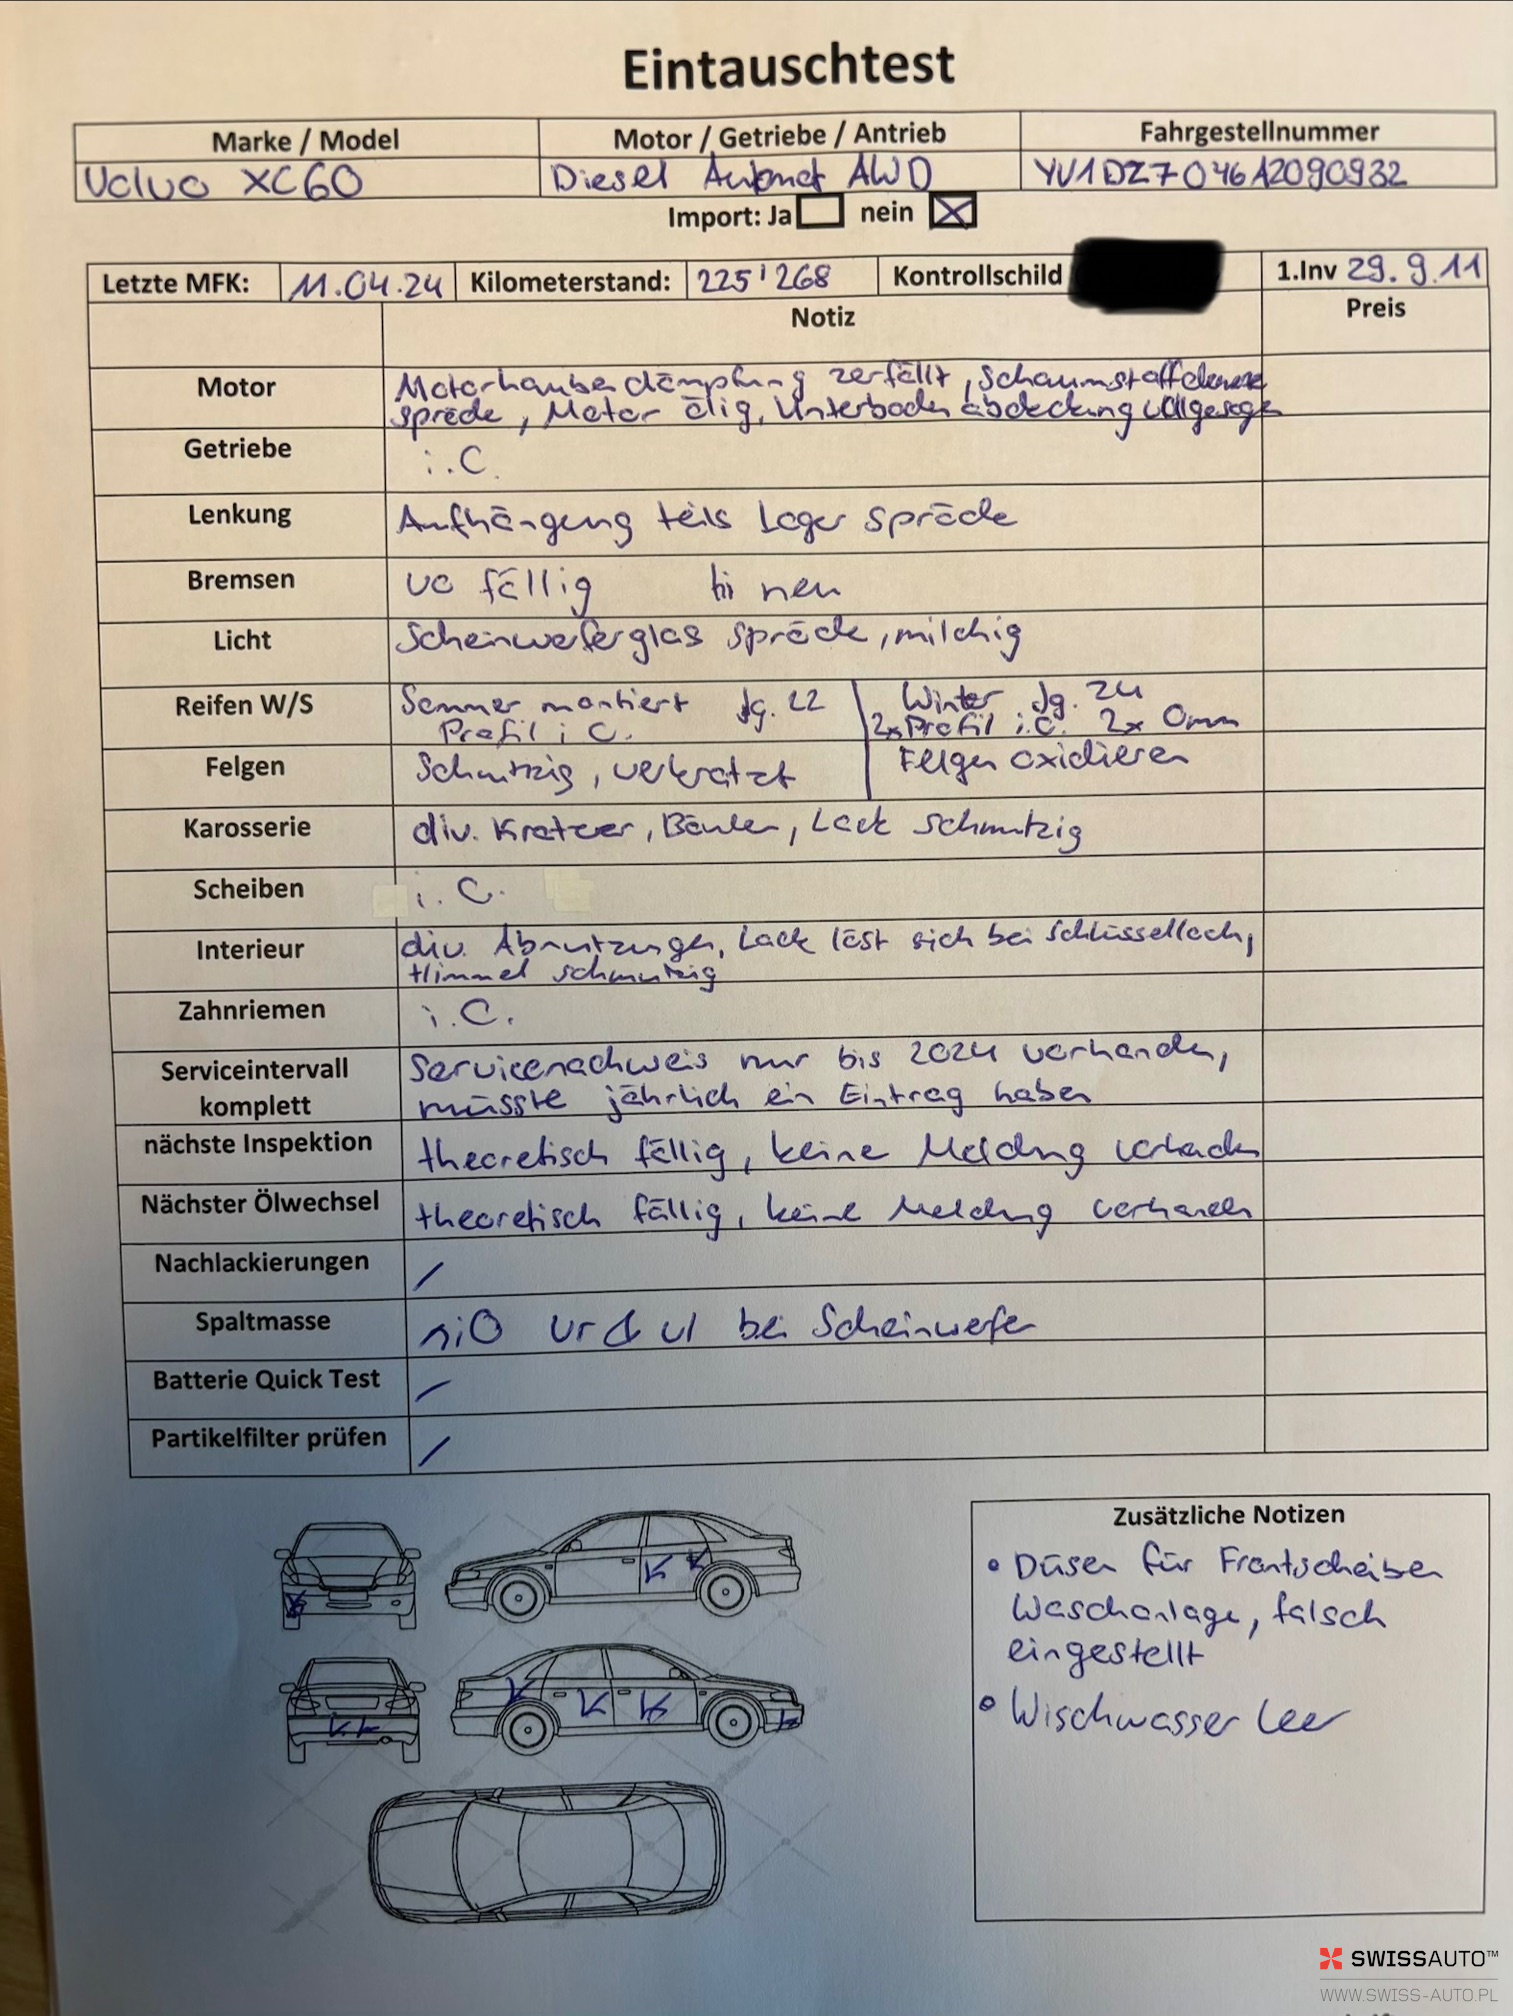 Eintauschtest
Marke / Model Motor / Getriebe / Antrieb Fahrgestellnummer
Volvo XC60 Diesel Automat AWD YV1DZ7046A2090932
Import: Ja nein
Letzte MFK: 11.04.24 Kilometerstand: 225'268 Kontrollschild 1.Inv 29.9.11
Notiz Preis
Motor Motorhaubendämpfung zerfällt, Schaumstoff
spröde, Motor ölig, Unterbodenabdeckung vollgesogen
Getriebe i.O.
Lenkung Aufhängung teils Lager spröde
Bremsen vo fällig hi neu
Licht Scheinwerferglas spröde, milchig
Reifen W/S Sommer montiert Jg. 22 Winter Jg. 24
Profil i.O. 2x Profil i.O. 2x 0mm
Felgen Schmutzig, verkratzt Felgen oxidieren
Karosserie div. Kratzer, Beulen, Lack schmutzig
Scheiben i.O.
Interieur div. Abnutzungen, Lack löst sich bei Schlüsselloch,
Himmel schmutzig
Zahnriemen i.O.
Serviceintervall Servicenachweis nur bis 2024 vorhanden,
komplett müsste jährlich ein Eintrag haben
nächste Inspektion theoretisch fällig, keine Meldung vorhanden
Nächster Ölwechsel theoretisch fällig, keine Meldung vorhanden
Nachlackierungen /
Spaltmasse niO vr & vl bei Scheinwerfer
Batterie Quick Test /
Partikelfilter prüfen /
Zusätzliche Notizen
• Düsen für Frontscheiben
Waschanlage, falsch
eingestellt
• Wischwasser leer
SWISSAUTO™
WWW.SWISS-AUTO.PL